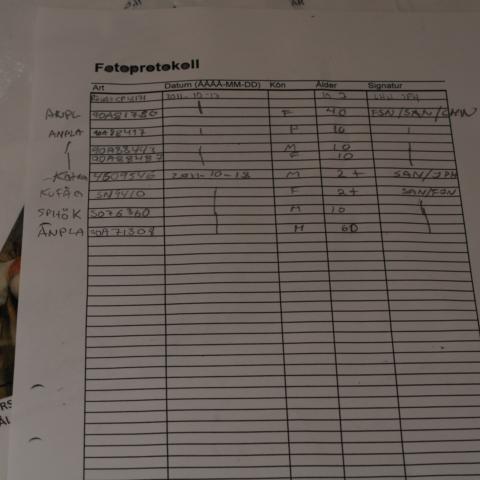 Fotoprotokoll
Art Datum (ÅÅÅÅ-MM-DD) Kön Ålder Signatur
2011-10-17
ÄNPL 90A81780 F 40 FSN/SAN/LHN
ÄNPLA 90A88417 F 10
90A88443 M 10
90A88487 F 10
4609546 2011-10-18 M 2+ SAN/JPH
KUFÅG SN9410 F 2+ SAN/FSN
SPHÖK 5076360 M 10
ÄNPLA 90A71308 M 60